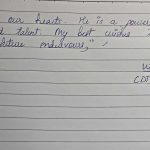 our hearts. He is a power
d talent. My best wishes
future endeavours,"